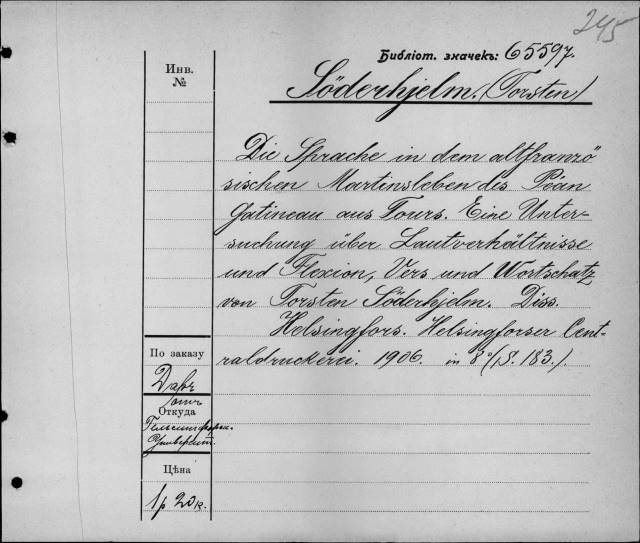 245
Библіот. значекъ: 65597.
Инв.
№
Söderhjelm. (Torsten)
Die Sprache in dem altfranzö
sischen Martinsleben des Péan
Gatineau aus Tours. Eine Unter-
suchung über Lautverhältnisse
und Flexion, Vers und Wortschatz
von Torsten Söderhjelm. Diss.
Helsingfors. Helsingforser Cent-
raldruckerei. 1906. in 8° (S. 183.).
По заказу
Даръ
Откуда
Гельсингфорс.
Университ.
Цѣна
1р 20к.